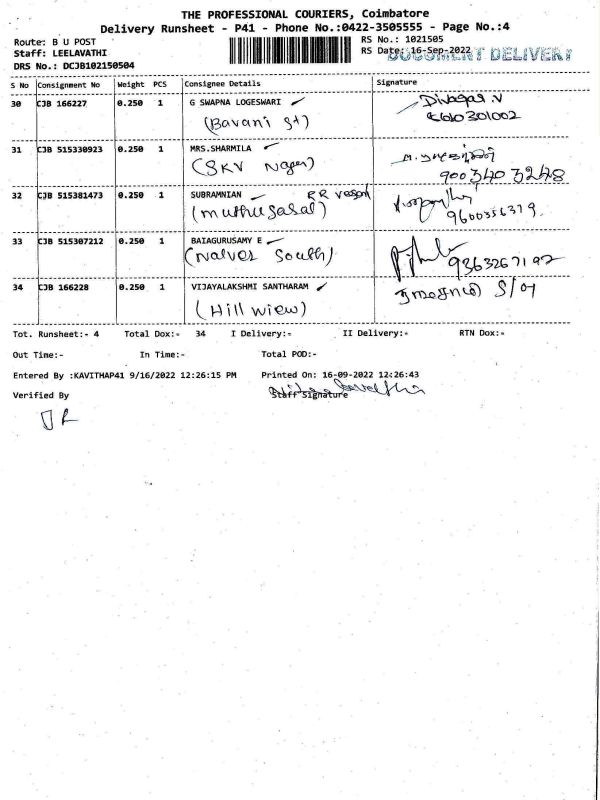 THE PROFESSIONAL COURIERS, Coimbatore
Delivery Runsheet - P41 - Phone No.:0422-3505555 - Page No.:4
Route: B U POST
RS No.: 1021505
Staff: LEELAVATHI
RS Date: 16-Sep-2022
DOCUMENT DELIVERY
DRS No.: DCJB102150504
S No Consignment No Weight PCS Consignee Details Signature
30 CJB 166227 0.250 1 G SWAPNA LOGESWARI Divagar.V
(Bavani St)
31 CJB 515330923 0.250 1 MRS.SHARMILA
(SKV Nager) 900340 3248
32 CJB 515381473 0.250 1 SUBRAMNIAN RR
(muthusasal) 9600356379
33 CJB 515307212 0.250 1 BAIAGURUSAMY E
(Nalves South) 9363267192
34 CJB 166228 0.250 1 VIJAYALAKSHMI SANTHARAM
(Hill wiew) S/o
Tot. Runsheet:- 4 Total Dox:- 34 I Delivery:- II Delivery:- RTN Dox:-
Out Time:- In Time:- Total POD:-
Entered By :KAVITHAP41 9/16/2022 12:26:15 PM Printed On: 16-09-2022 12:26:43
Verified By Staff Signature